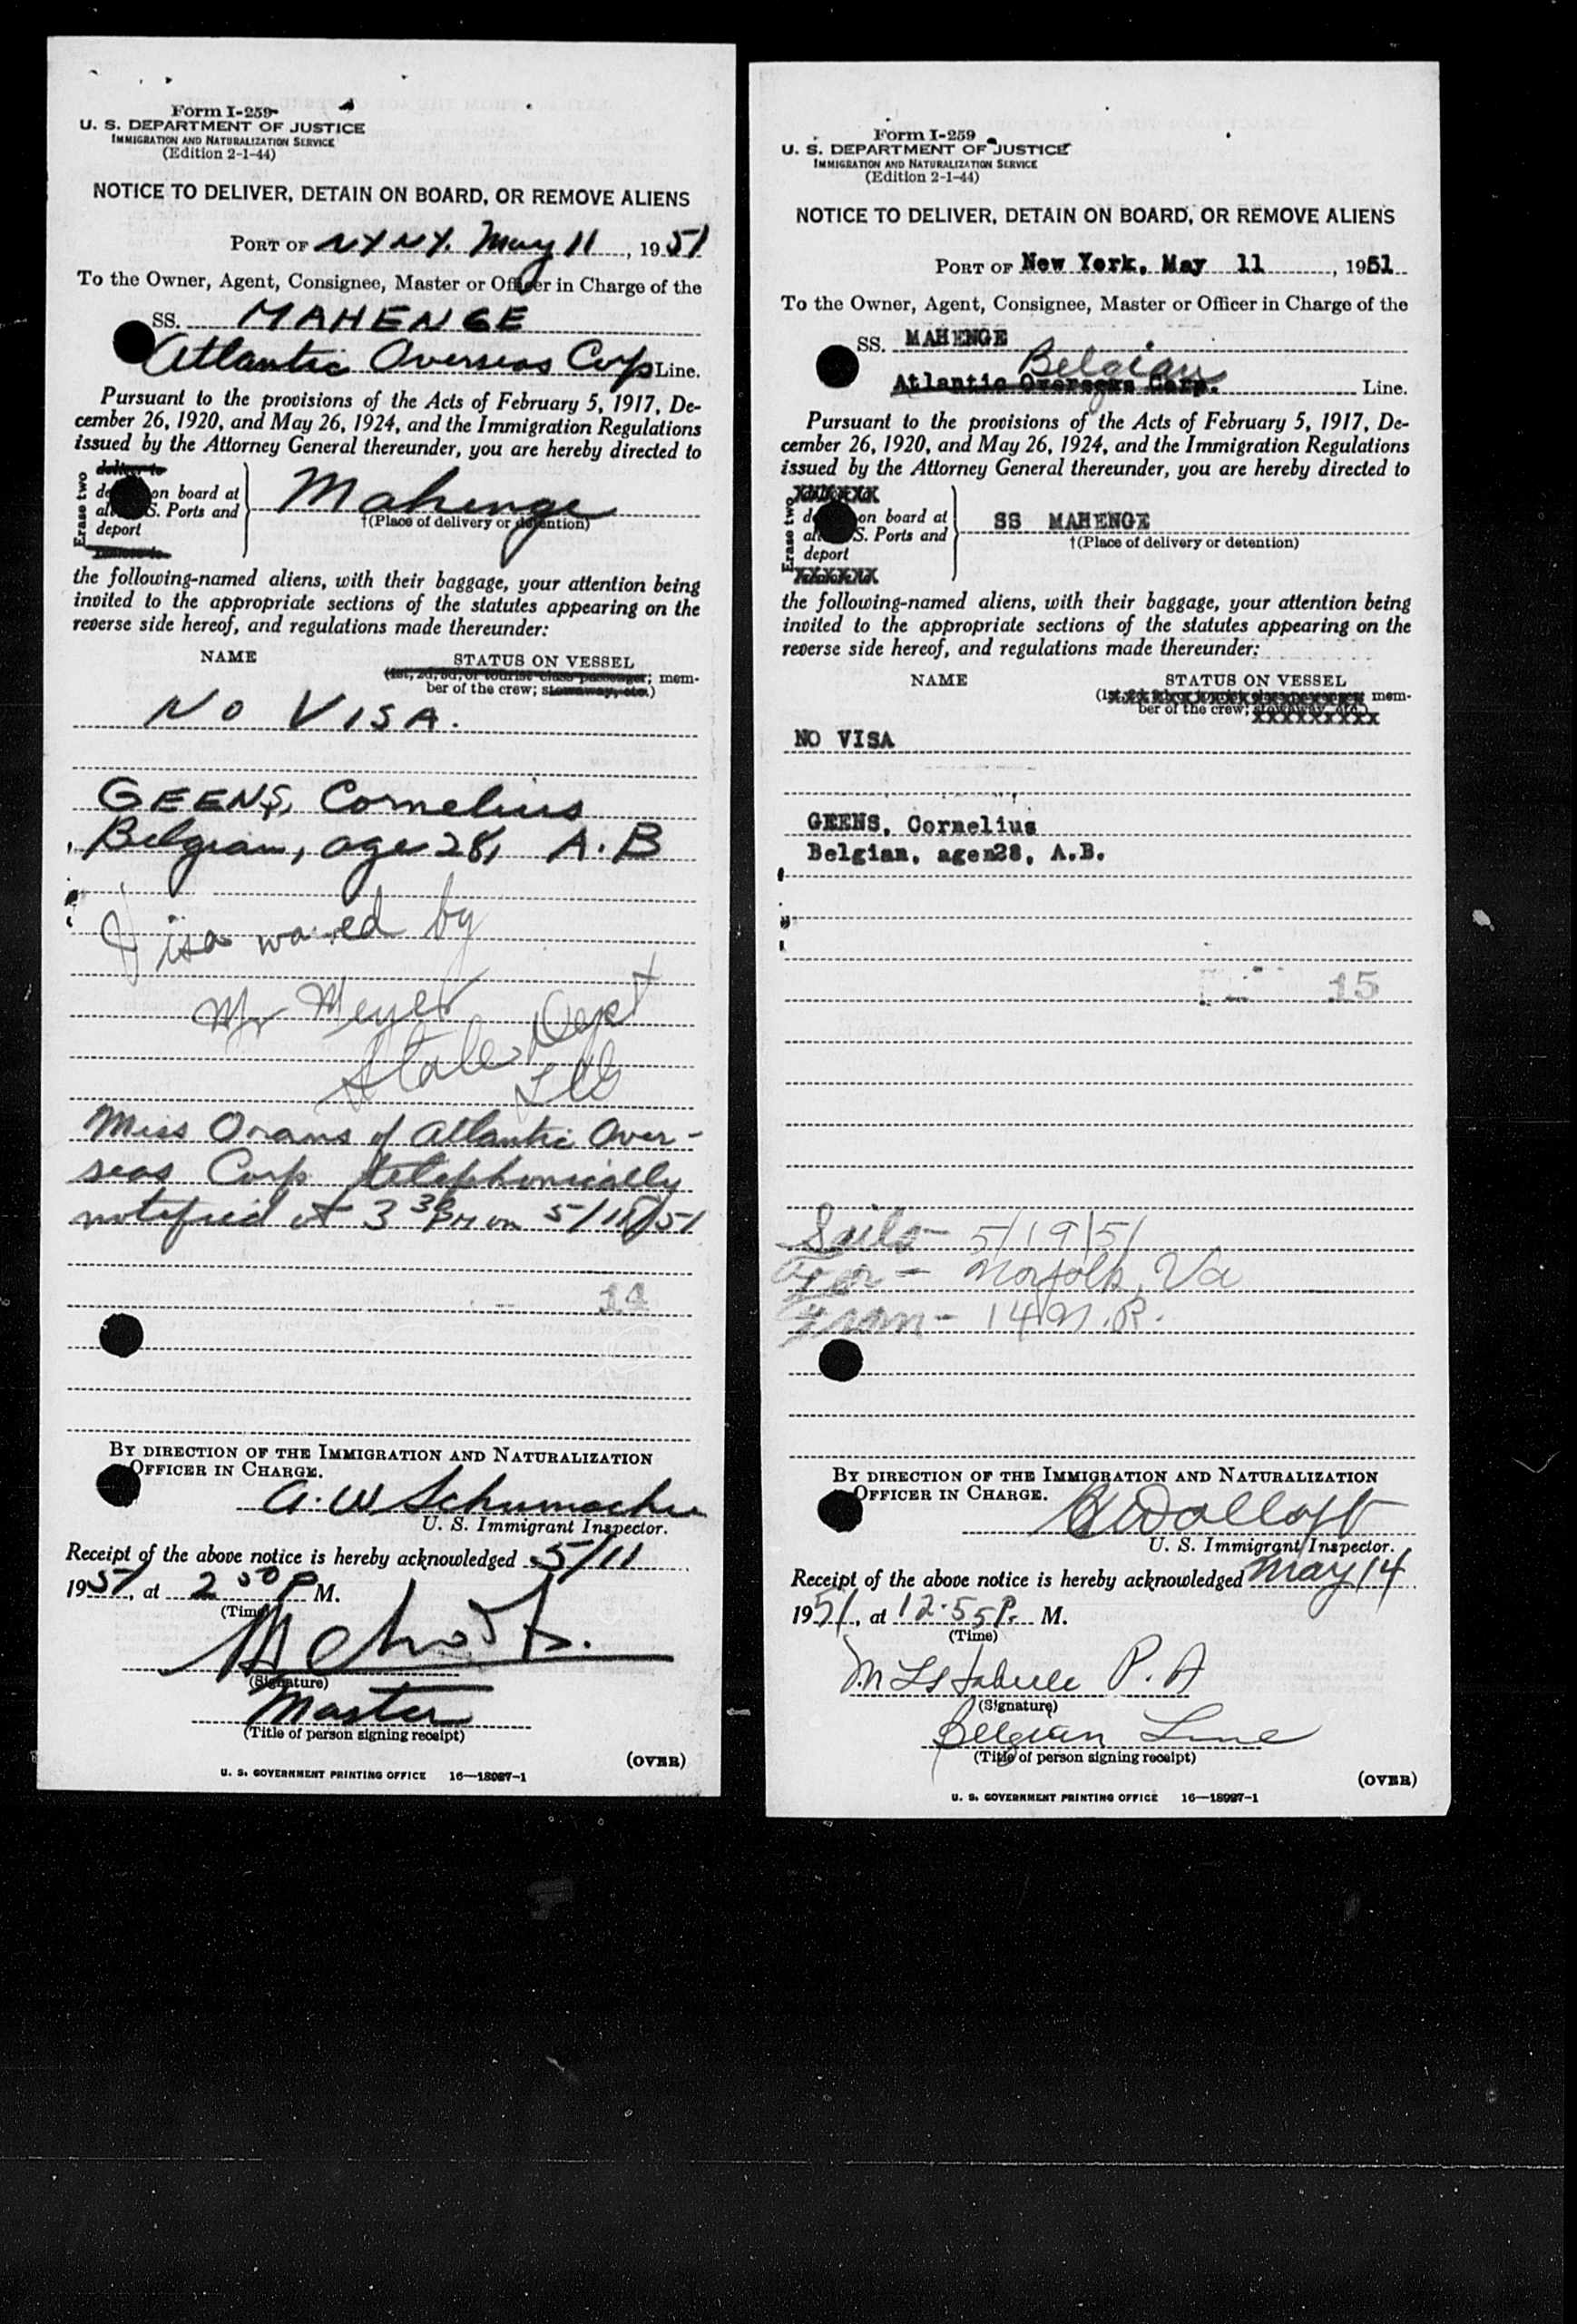 Form I-259
U. S. DEPARTMENT OF JUSTICE
IMMIGRATION AND NATURALIZATION SERVICE
(Edition 2-1-44)
NOTICE TO DELIVER, DETAIN ON BOARD, OR REMOVE ALIENS
PORT OF NY NY. May 11, 1951
To the Owner, Agent, Consignee, Master or Officer in Charge of the
SS. MAHENGE
Atlantic Overseas Corp Line.
Pursuant to the provisions of the Acts of February 5, 1917, De-
cember 26, 1920, and May 26, 1924, and the Immigration Regulations
issued by the Attorney General thereunder, you are hereby directed to
Erase two
deliver to
on board at
S. Ports and
deport
Mahenge
†(Place of delivery or detention)
the following-named aliens, with their baggage, your attention being
invited to the appropriate sections of the statutes appearing on the
reverse side hereof, and regulations made thereunder:
NAME STATUS ON VESSEL
(1st, 2d, 3d, or tourist class passenger; mem-
ber of the crew; stowaway, etc.)
NO VISA.
GEENS, Cornelius
Belgian, age 28, A.B
Visa waived by
Mr Meyer
State Dept
Miss Orans of Atlantic Over-
seas Corp telephonically
notified at 3 30 PM on 5/15/51
14
BY DIRECTION OF THE IMMIGRATION AND NATURALIZATION
OFFICER IN CHARGE.
A. W. Schumacher
U. S. Immigrant Inspector.
Receipt of the above notice is hereby acknowledged 5/11
1951, at 2 50 P M.
(Time)
(Signature)
Master
(Title of person signing receipt)
(OVER)
U. S. GOVERNMENT PRINTING OFFICE 16—18987-1
Form I-259
U. S. DEPARTMENT OF JUSTICE
IMMIGRATION AND NATURALIZATION SERVICE
(Edition 2-1-44)
NOTICE TO DELIVER, DETAIN ON BOARD, OR REMOVE ALIENS
PORT OF New York, May 11, 1951
To the Owner, Agent, Consignee, Master or Officer in Charge of the
SS. MAHENGE
Belgian
Atlantic Overseas Corp. Line.
Pursuant to the provisions of the Acts of February 5, 1917, De-
cember 26, 1920, and May 26, 1924, and the Immigration Regulations
issued by the Attorney General thereunder, you are hereby directed to
Erase two
on board at
S. Ports and
deport
SS MAHENGE
†(Place of delivery or detention)
the following-named aliens, with their baggage, your attention being
invited to the appropriate sections of the statutes appearing on the
reverse side hereof, and regulations made thereunder:
NAME STATUS ON VESSEL
mem-
ber of the crew;
NO VISA
GEENS, Cornelius
Belgian, agen28, A.B.
15
Sails- 5/19/51
For- Norfolk, Va
From- 14 N.R.
BY DIRECTION OF THE IMMIGRATION AND NATURALIZATION
OFFICER IN CHARGE.
U. S. Immigrant Inspector.
Receipt of the above notice is hereby acknowledged May 14
1951, at 12.55 P. M.
(Time)
P. A
(Signature)
Belgian Line
(Title of person signing receipt)
(OVER)
U. S. GOVERNMENT PRINTING OFFICE 16—18987-1